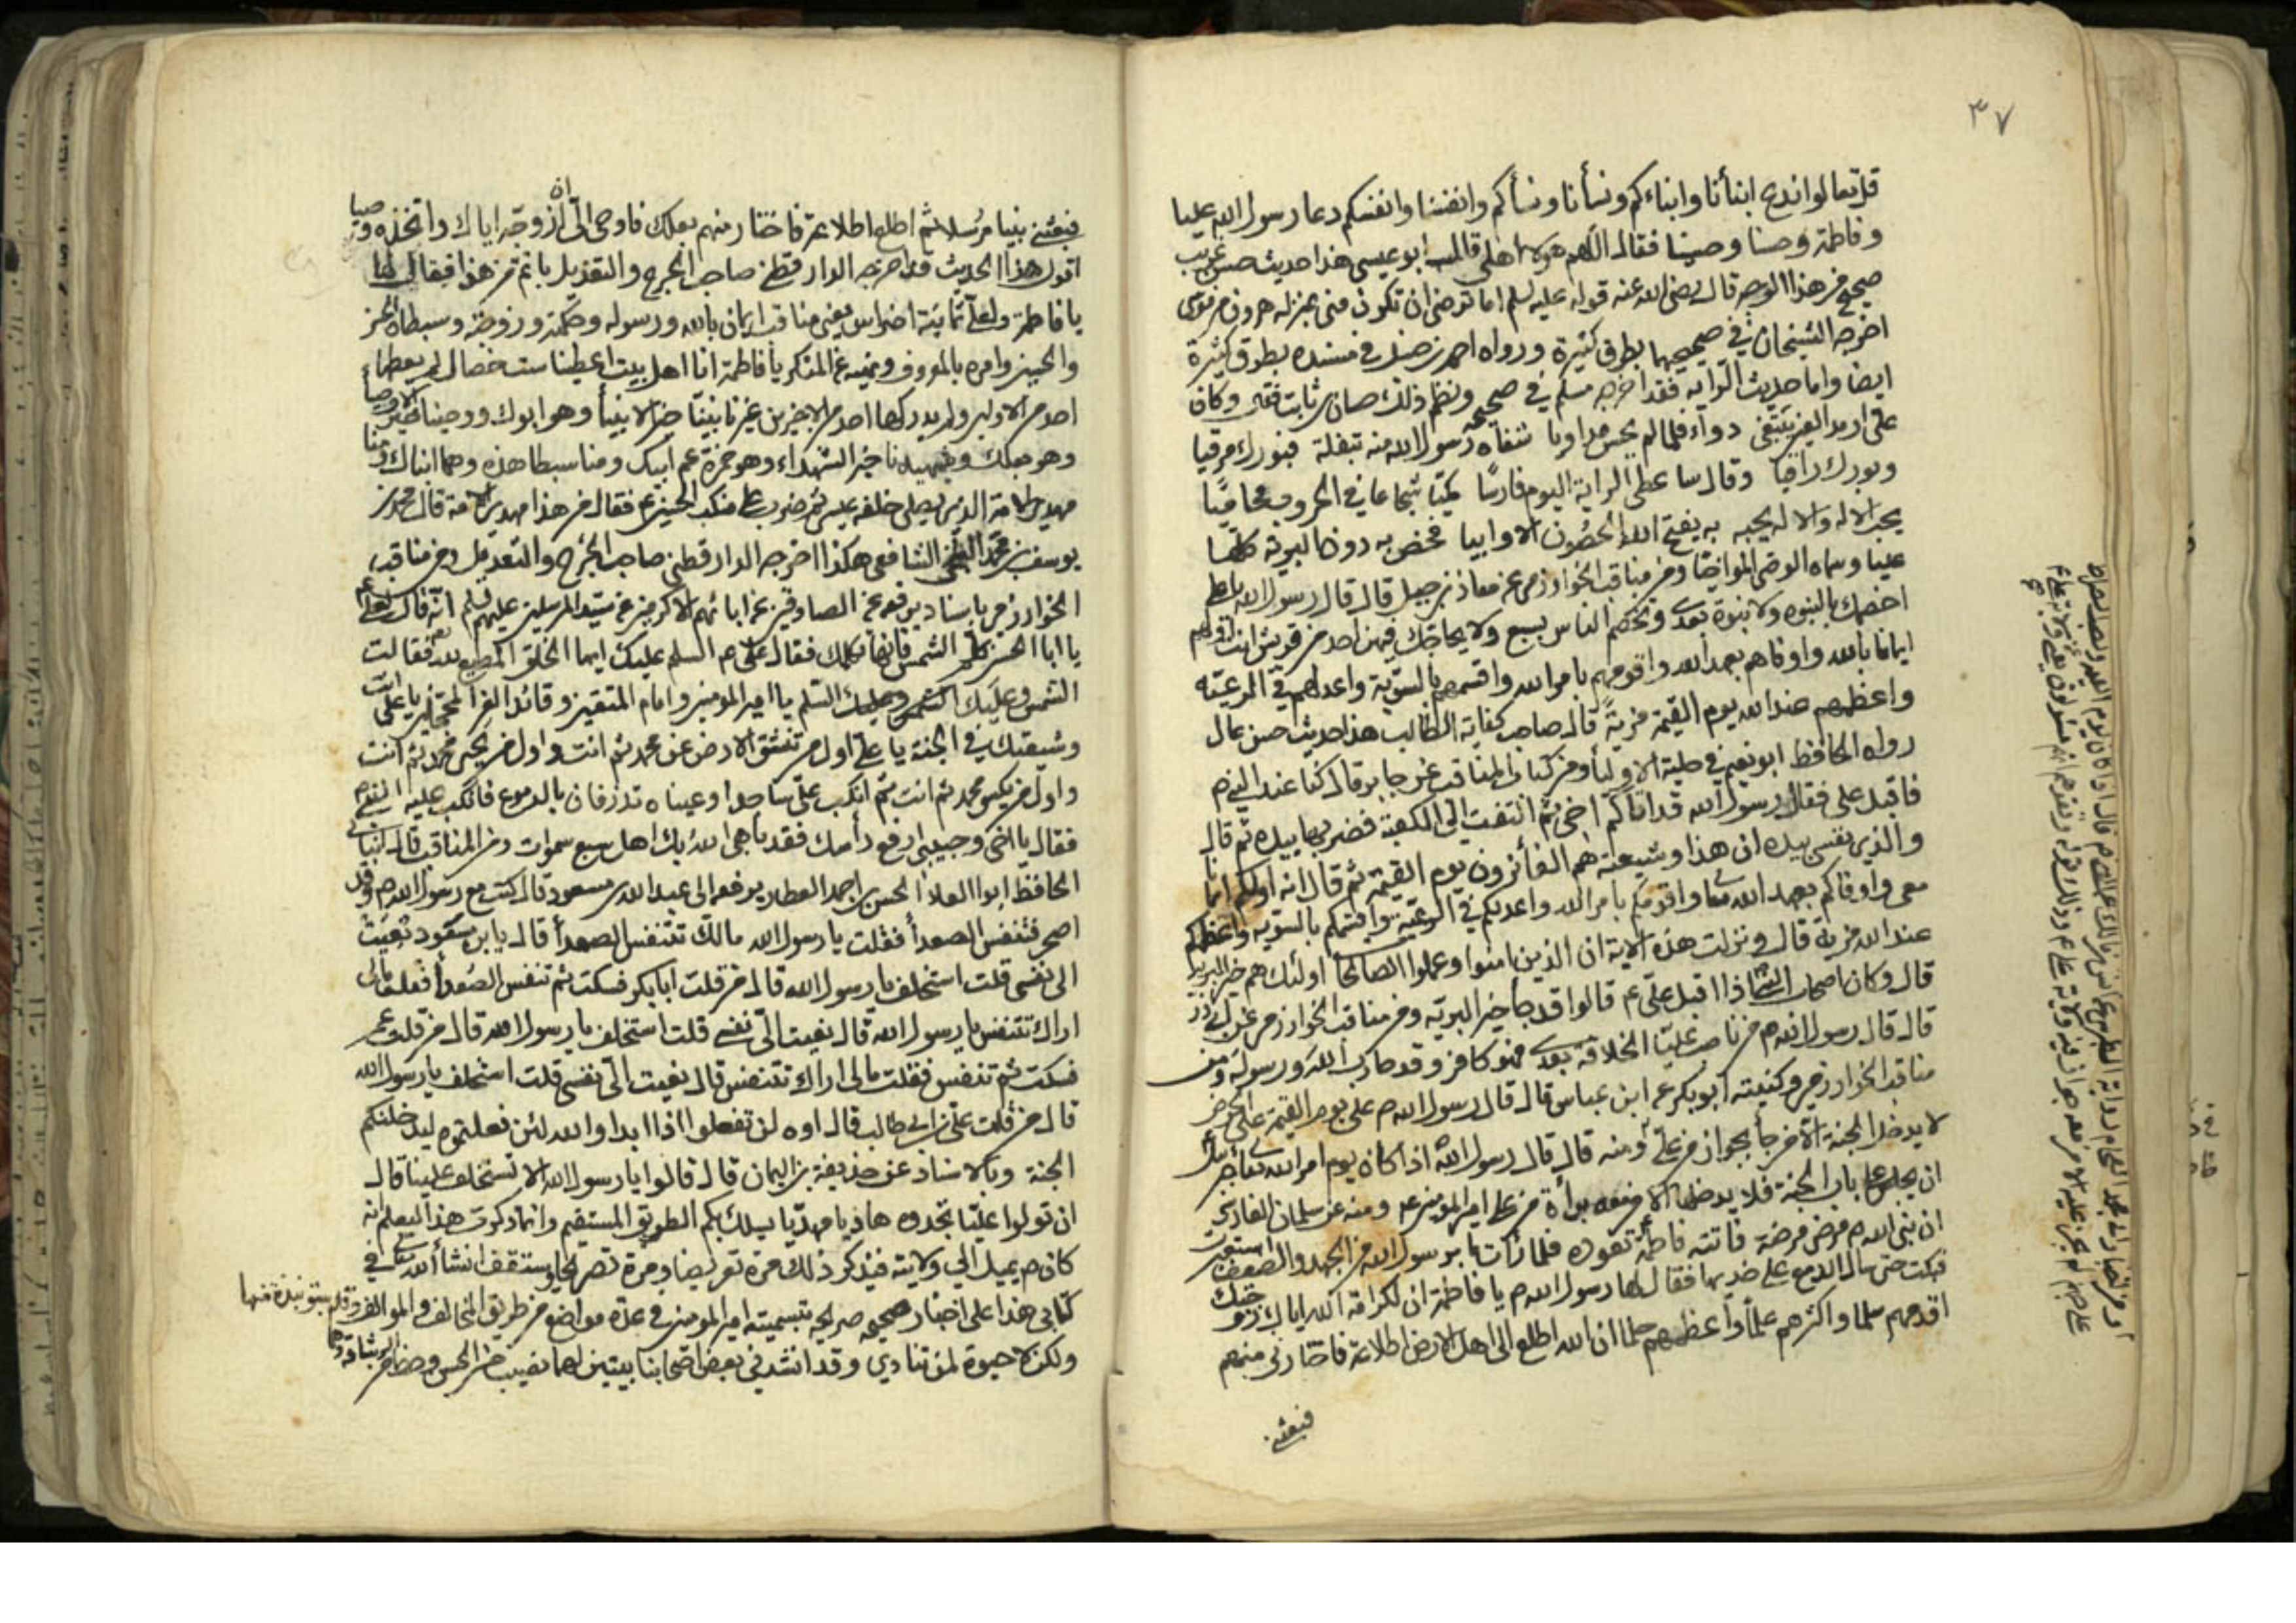 ٣٧
قل تعالوا ندع ابنأنا وابناءكم ونسأنا ونسأكم وانفسنا وانفسكم دعا رسول الله عليا
وفاطمة وحسنا وحسينا فقال اللهم هولاء اهلي قال ابو عيسى هذا حديث حسن غريب
صحيح من هذا الوجه قال رضى الله عنه قوله عليه السلم اما ترضى ان تكون منى بمنزله هرون من موسى
اخرجه الشيخان في صحيحيهما بطرق كثيرة ورواه احمد بن حنبل في مسنده بطرق كثيرة
ايضا واما حديث الراية فقد اخرجه مسلم في صحيحه ونظم ذلك حسان بن ثابت فقال وكان
على ارمد العين يبتغى دواء فلما لم يحس مداويا شفاه رسول الله منه بتفلة فبورك مرقيا
وبورك راقيا وقال ساعطى الراية اليوم فارسًا كميّا شجاعا في الحروب محاميًا
يحب الاله والاله يحبه به يفتح الله الحصون الاوابيا فخص به دون البرية كلها
عليا وسماه الوصى المواخيا ومن مناقب الخوارزمى عن معاذ بن جبل قال قال رسول الله يا على
اخصمك بالنبوه ولا نبوة بعدى وتخصم الناس بسبع ولا يحاجك فيهن احد من قريش انت اولهم
ايمانا بالله واوفاهم بعهد الله واقومهم بامر الله واقسمهم بالسوية واعدلهم في الرعيّة
واعظمهم عند الله يوم القيمة مزيةً قال صاحب كفاية الطالب هذا حديث حسن عال
رواه الحافظ ابو نعيم في حلية الاوليأ ومن كتاب المناقب عن جابر قال كنا عند النبي م
فاقبل على فقال رسول الله قد اتاكم اخى ثم التفت الى الكعبة فضربها بيده ثم قال
والذي نفسى بيده ان هذا وشيعته هم الفائزون يوم القيمة ثم قال انه اولكم ايمانا
معى واوفاكم بعهد الله تعا واقومكم بامر الله واعدلكم في الرعيّة واقسمكم بالسويه واعظمكم
عند الله مزية قال ونزلت هذه الاية ان الذين امنوا وعملوا الصالحات اولئك هم خير البرية
قال وكان اصحاب النبي اذا اقبل على ع قالوا قد جاء خير البريّه ومن مناقب الخوارزمى عن ابى ذر
قال قال رسول الله م من ناصب عليّا الخلافة بعدى فهو كافر وقد حارب الله ورسوله ومن
مناقب الخوارزمى وكنيته ابو بكر عن ابن عباس قال قال رسول الله م على يوم القيمة على الحوض
لا يدخل الجنة الا من جأ بجواز من على ومنه قال قال رسول الله اذا كان يوم امر الله تعا جبرئيل
ان يجلس على باب الجنة فلا يدخلها الا من معه برأة من على امير المؤمنين ع ومنه عن سلمان الفارسى
ان نبى الله م مرض مرضة فاتته فاطمة تعوده فلما رأت ما برسول الله من الجهد والضعف استعبرت
فبكت حتى سال الدمع على خديها فقال لها رسول الله م يا فاطمة ان لكرامة الله اياك زوجتك
اقدمهم سلما واكثرهم علمًا واعظمهم حلما ان الله اطلع الى اهل الارض اطلاعة فاختارنى منهم
فبعثنى
فبعثنى نبيا مرُسلا ثم اطلع اطلاعة فاختار منهم بعلك فاوحى الىّ ان ازوجه اياك واتخذه وصيا
اقول هذا الحديث قد اخرجه الدارقطنى صاحب الجرح والتعديل باتم من هذا فقال لها
يا فاطمة ولعلى ثمانية اضراس يعنى مناقب ايمان بالله ورسوله وحكمته وزوجته وسبطاه الحسن
والحسين وامره بالمعروف ونهيه عن المنكر يا فاطمة انا اهل بيت اعطينا ست خصال لم يعطها
احد من الاولين ولم يدركها احد من الاخرين غيرنا نبينّا خير الانبيأ وهو ابوك ووصينا خير الاوصيا
وهو بعلك وشهيدنا خير الشهداء وهو حمزة عم ابيك ومنا سبطا هذه وهما ابناك ومنا
مهدى الامة الذى يصلى خلفه عيسى ثم ضرب على منكب الحسين ع فقال من هذا مهدى الامة قال محمد بن
يوسف بن محمد الشافعى هكذا اخرجه الدارقطنى صاحب الجرح والتعديل ومن مناقب
الخوارزمى باسناد يرفعه عن الصادقين عن ابائهم الاكرمين عن سيّد المرسلين عليهم السلم انّه قال لعلى ع
يا ابا الحسن كلم الشمس فانها تكلمك فقال على ع السلم عليك ايها الخلق المطيع لله فقالت
الشمس وعليك السلم يا امير المومنين وامام المتقين وقائد الغر المحجلين يا على انت
وشيعتك في الجنة يا على اول من تنشق الارض عن محمد ثم انت واول من يحيى محمد ثم انت
واول من يكسى محمد ثم انت ثم انكب على ساجدا وعيناه تذرفان بالدموع فانكب عليه النبي م
فقال يا اخى وحبيبى ارفع رأسك فقد باهى الله بك اهل سبع سموات ومن المناقب قال انبأنى
الحافظ ابو العلا الحسن بن احمد العطار يرفعه الى عبد الله بن مسعود قال كنت مع رسول الله م وقد
اصحر فتنفس الصعدأ فقلت يا رسول الله مالك تتنفس الصعدأ قال يا بن مسعود نُعيَتْ
الى نفسى قلت استخلف يا رسول الله قال من قلت ابا بكر فسكت ثم تنفس الصُعدأ فقلت مالى
اراك تتنفس يا رسول الله قال نعيت الىّ نفسى قلت استخلف يا رسول الله قال من قلت عمر
فسكت ثم تنفس فقلت مالى اراك تتنفس قال نعيت الىّ نفسى قلت استخلف يا رسول الله
قال من قلت على بن ابى طالب قال اوه لن تفعلوا اذا ابدا والله لئن فعلتموه ليدخلنكم
الجنة وبالاسناد عن حذيفة بن اليمان قال قالوا يا رسول الله الا تستخلف علينا قال
ان تولوا عليّا تجدوه هاديا مهديّا يسلك بكم الطريق المستقيم وانما ذكرت هذا ليعلم انه
كان م يميل الى ولايته فيذكر ذلك مرة تعريضا ومرة تصريحا وستقف انشأ الله تعا في
كتابى هذا على اخبار صحيحه صريحه بتسميته امير المومنين في عدة مواضع من طريق المخالف والموالف
ولكن لا حيوة لمن تنادي وقد انشد فى بعض اصحابنا بيتين لهما نصيب من الحسن وحظ من الرشاقة وهما